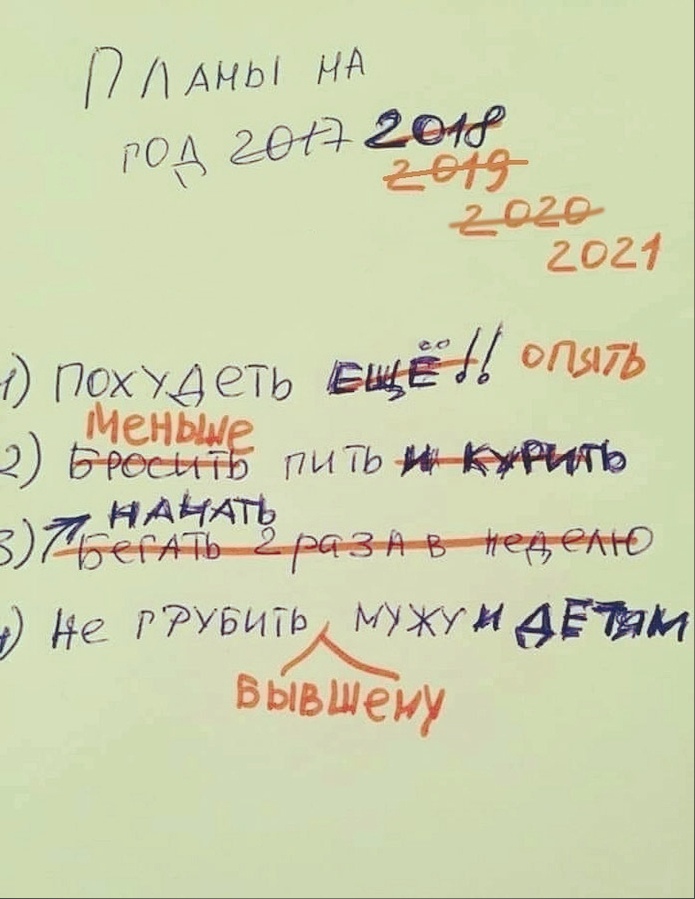 Планы на
год 2017 2018
2019
2020
2021
1) похудеть ЕЩЁ!! опять
меньше
2) бросить пить и курить
НАЧАТЬ
3) бегать 2 раза в неделю
4) не грубить мужу и ДЕТЯМ
бывшему